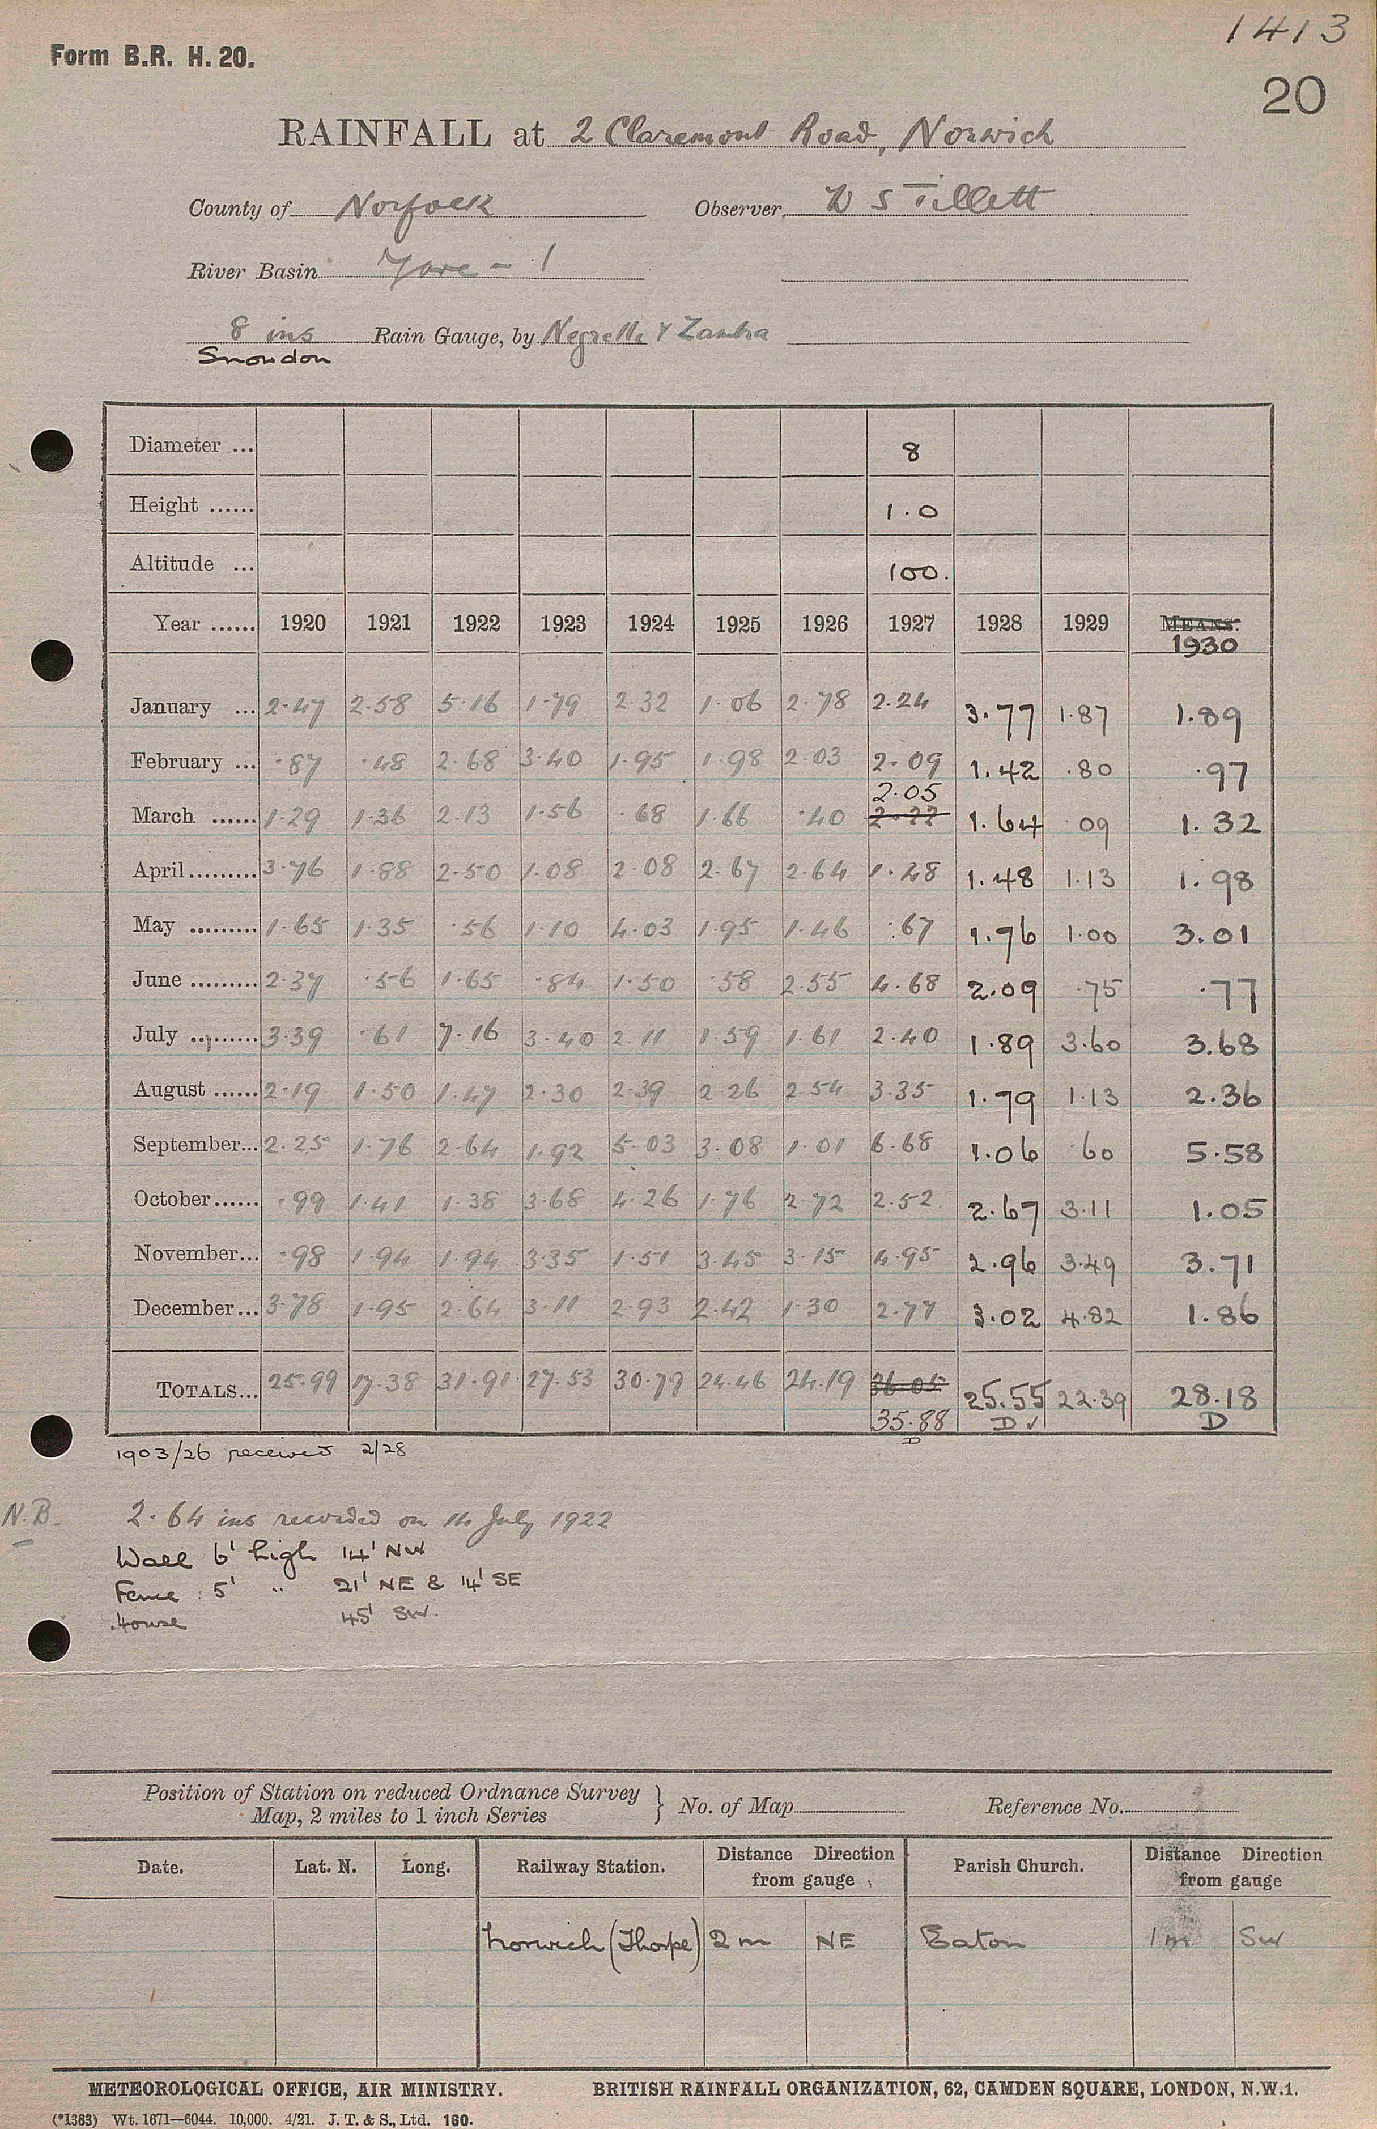 1413
Form B.R. H. 20.
20
RAINFALL at 2 Claremont Road, Norwich
County of Norfolk Observer W S Tillett
River Basin Yare - 1
8 ins Rain Gauge, by Negretti & Zambra
Snowdon
Diameter ... 8
Height ...... 1.0
Altitude ... 100.
Year ...... 1920 1921 1922 1923 1924 1925 1926 1927 1928 1929 MEANS.
1930
January ... 2.47 2.58 5.16 1.79 2.32 1.06 2.78 2.24 3.77 1.87 1.89
February ... .87 .48 2.68 3.40 1.95 1.98 2.03 2.09 1.42 .80 .97
2.05
March ...... 1.29 1.36 2.13 1.56 .68 1.66 .40 2.22 1.64 09 1.32
April ......... 3.76 1.88 2.50 1.08 2.08 2.67 2.64 1.48 1.48 1.13 1.98
May ......... 1.65 1.35 .56 1.10 4.03 1.95 1.46 .67 1.76 1.00 3.01
June ......... 2.37 .56 1.65 .84 1.50 .58 2.55 4.68 2.09 .75 .77
July ......... 3.39 .61 7.16 3.40 2.11 1.59 1.61 2.40 1.89 3.60 3.68
August ...... 2.19 1.50 1.47 2.30 2.39 2.26 2.54 3.35 1.79 1.13 2.36
September... 2.25 1.76 2.64 1.92 5.03 3.08 1.01 6.68 1.06 .60 5.58
October...... .99 1.41 1.38 3.68 4.26 1.76 2.72 2.52 2.67 3.11 1.05
November... .98 1.94 1.94 3.35 1.51 3.45 3.15 4.95 2.96 3.49 3.71
December... 3.78 1.95 2.64 3.11 2.93 2.42 1.30 2.77 3.02 4.82 1.86
TOTALS... 25.99 17.38 31.91 27.53 30.79 24.46 24.19 36.05 25.55 22.39 28.18
35.88 D ✓ D
D
1903/26 received 2/28
N.B. 2.64 ins recorded on 14 July 1922
Wall 6' high 14' NW
Fence 5' " 21' NE & 14' SE
House 45' SW.
Position of Station on reduced Ordnance Survey
Map, 2 miles to 1 inch Series } No. of Map Reference No.
Date. Lat. N. Long. Railway Station. Distance Direction from gauge Parish Church. Distance Direction from gauge
Norwich (Thorpe) 2 m NE Eaton 1 m SW
METEOROLOGICAL OFFICE, AIR MINISTRY. BRITISH RAINFALL ORGANIZATION, 62, CAMDEN SQUARE, LONDON, N.W.1.
(*1383) Wt. 1671—6044. 10,000. 4/21. J. T. & S., Ltd. 160.